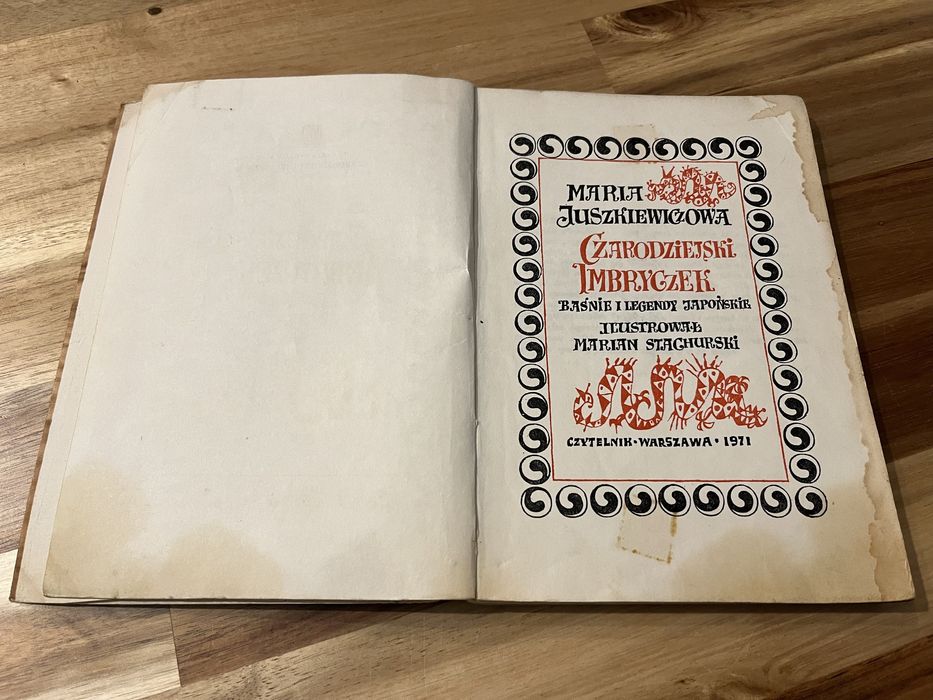 MARIA
JUSZKIEWICZOWA
CZARODZIEJSKI
IMBRYCZEK
BAŚNIE I LEGENDY JAPOŃSKIE
ILUSTROWAŁ
MARIAN STACHURSKI
CZYTELNIK • WARSZAWA • 1971